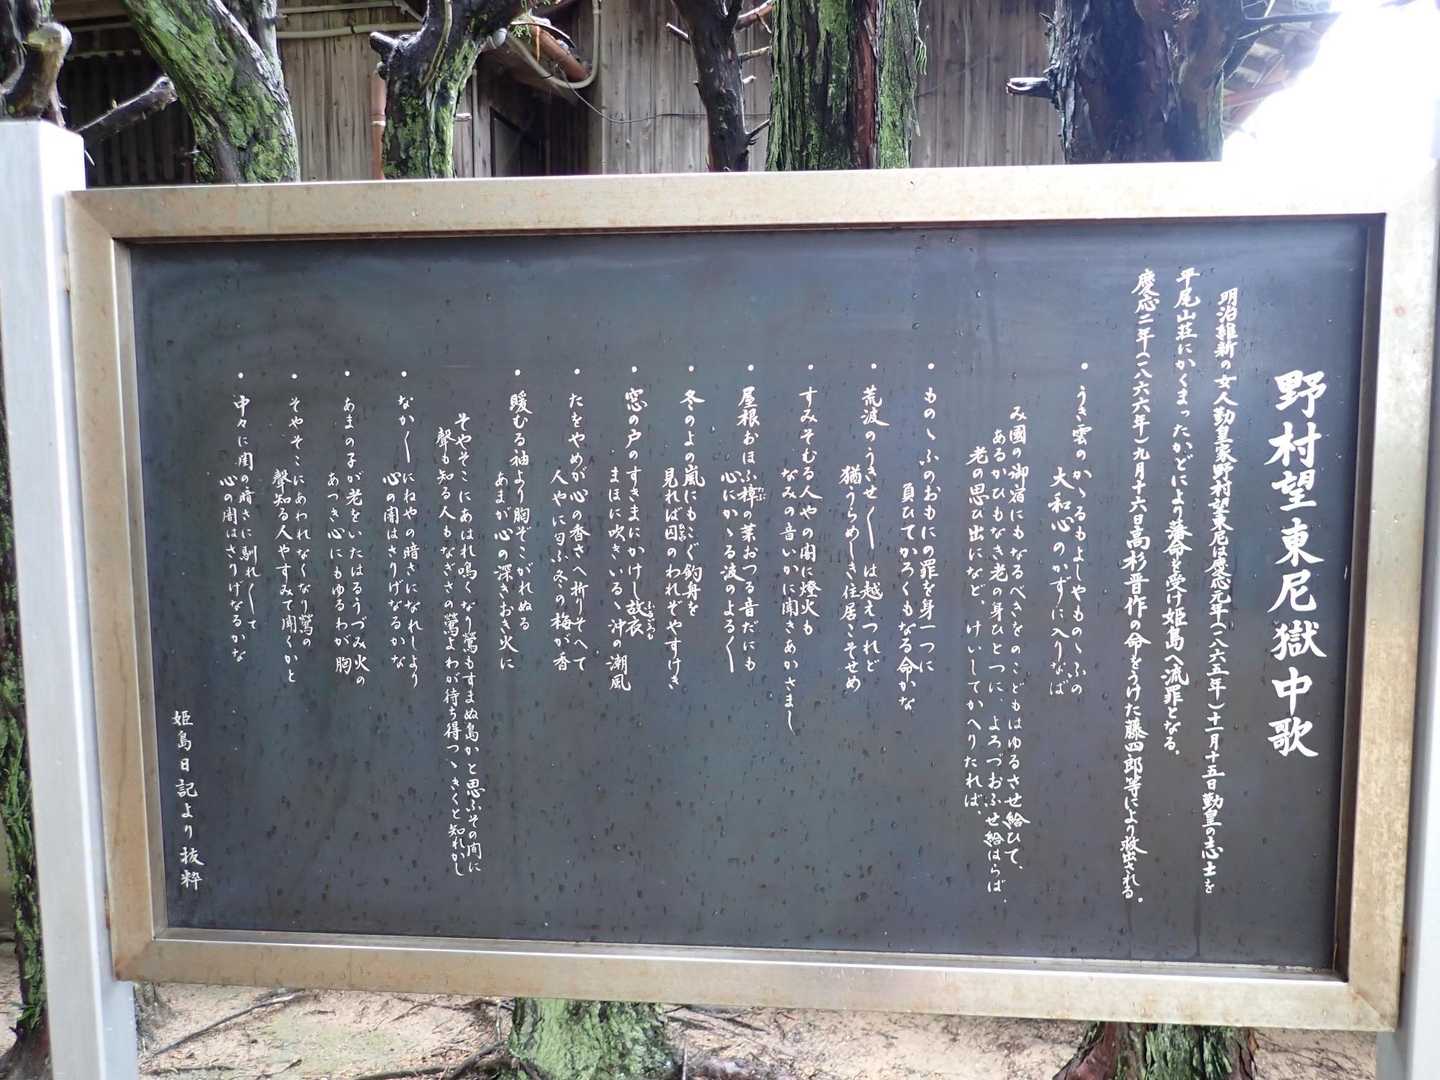 野村望東尼獄中歌
明治維新の女人勤皇家野村望東尼は慶応元年(一八六五年)十一月十五日勤皇の志士を
平尾山荘にかくまったかどにより藩命を受け姫島へ流罪となる。
慶応二年(一八六六年)九月十六日高杉晋作の命をうけた藤四郎等により救出される。
・うき雲のかゝるもよしやものゝふの
大和心のかずに入りなば
み國の御宿にもなるべきをのこどもはゆるさせ給ひて、
あるかひもなき老の身ひとつに、よろづおふせ給はらば、
老の思ひ出になど、けいしてかへりたれば、
・ものゝふのおもにの罪を身一つに
負ひてかろくもなる命かな
・荒波のうきせ〳〵は越えつれど
猶うらめしき住居こそせめ
・すみそむる人やの闇に燈火も
なみの音いかに聞きあかさまし
・屋根おほふ樟の葉おつる音だにも
心にかゝる波のよる〳〵
・冬のよの嵐にもこぐ釣舟を
見れば囚のわれぞやすけき
・窓の戸のすきまにかけし故衣
まほに吹きいるゝ沖の潮風
・たをやめが心の香さへ折りそへて
人やに匂ふ冬の梅が香
・暖むる袖より胸ぞこがれぬる
あまが心の深きおき火に
そやそこにあはれ鳴くなり鶯もすまぬ島かと思ふその間に
聲も知る人もなぎさの鶯よわが待ち得つゝきくと知れかし
・なか〳〵にねやの暗さになれしより
心の闇はさりげなるかな
・あまの子が老をいたはるうづみ火の
あつき心にもゆるわが胸
・そやそこにあわれなくなり鶯の
聲知る人やすみて聞くかと
・中々に閨の暗さに馴れ〳〵て
心の闇はさりげなるかな
姫島日記より抜粋